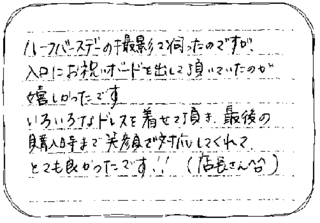 ハーフバースデーの撮影で伺ったのですが、
入口にお祝いボードを出して頂いていたのが
嬉しかったです
いろいろなドレスを着せて頂き、最後の
購入時まで笑顔で対応してくれて、
とても良かったです!! (店長さん